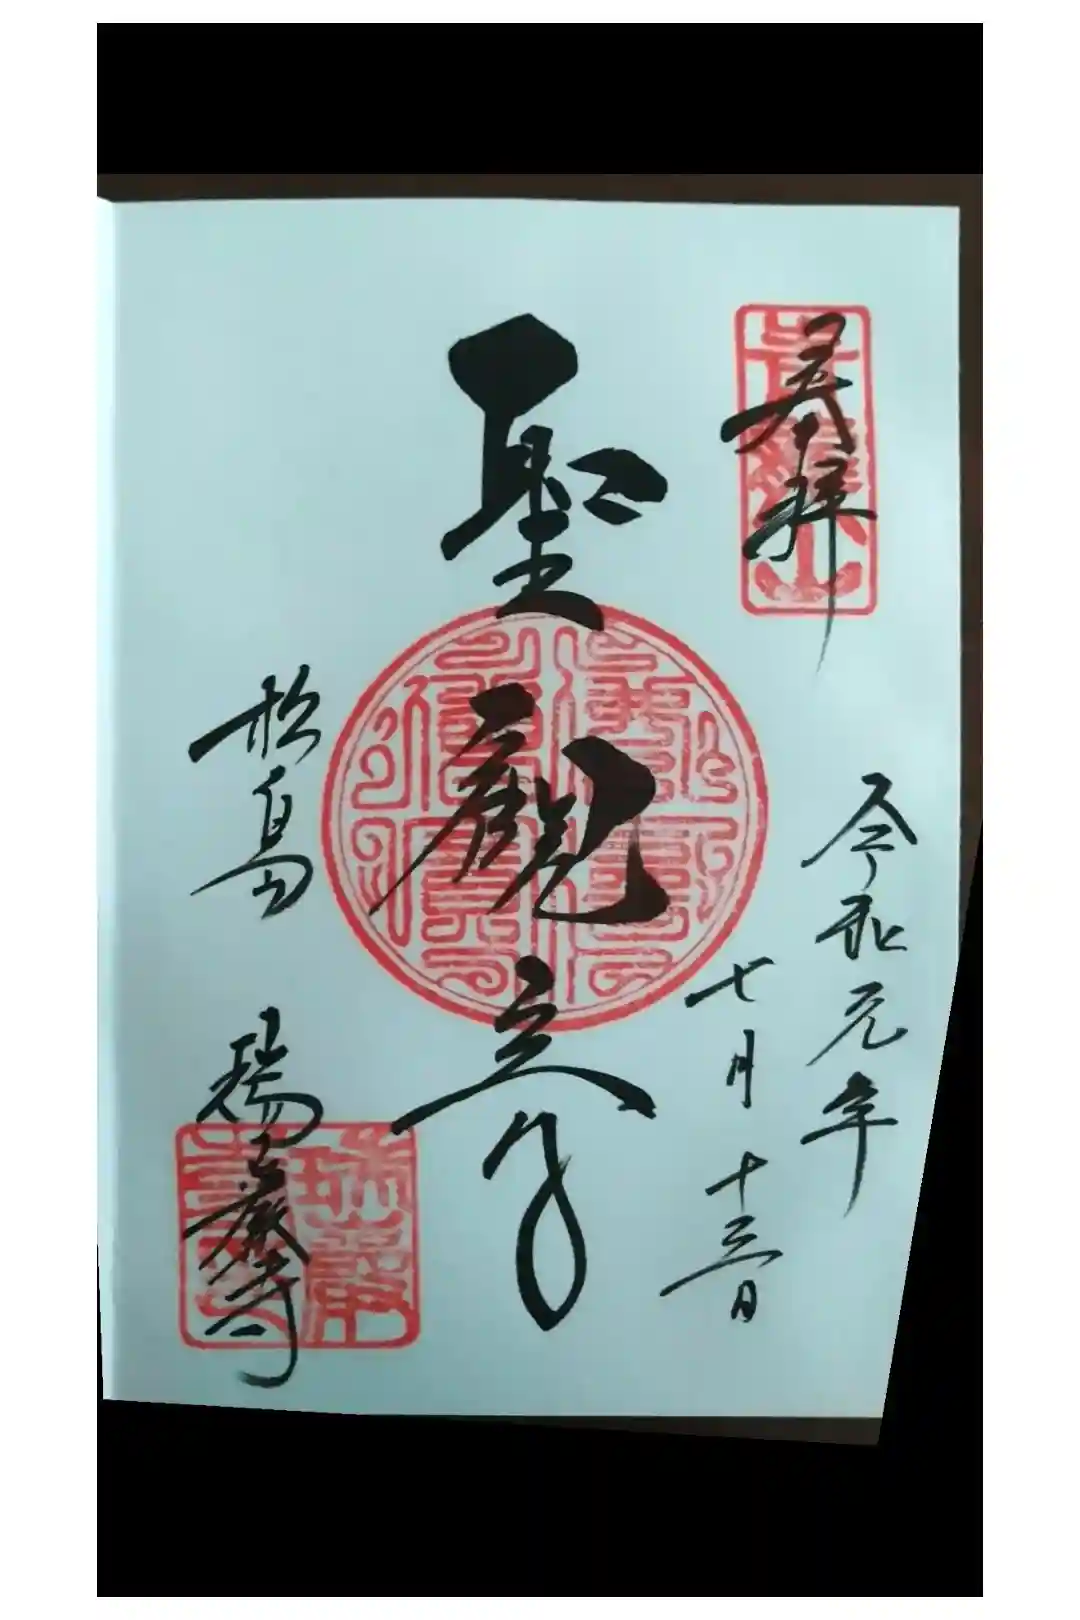 奉拝
令和元年
七月十三日
聖観音
松島
瑞巌寺